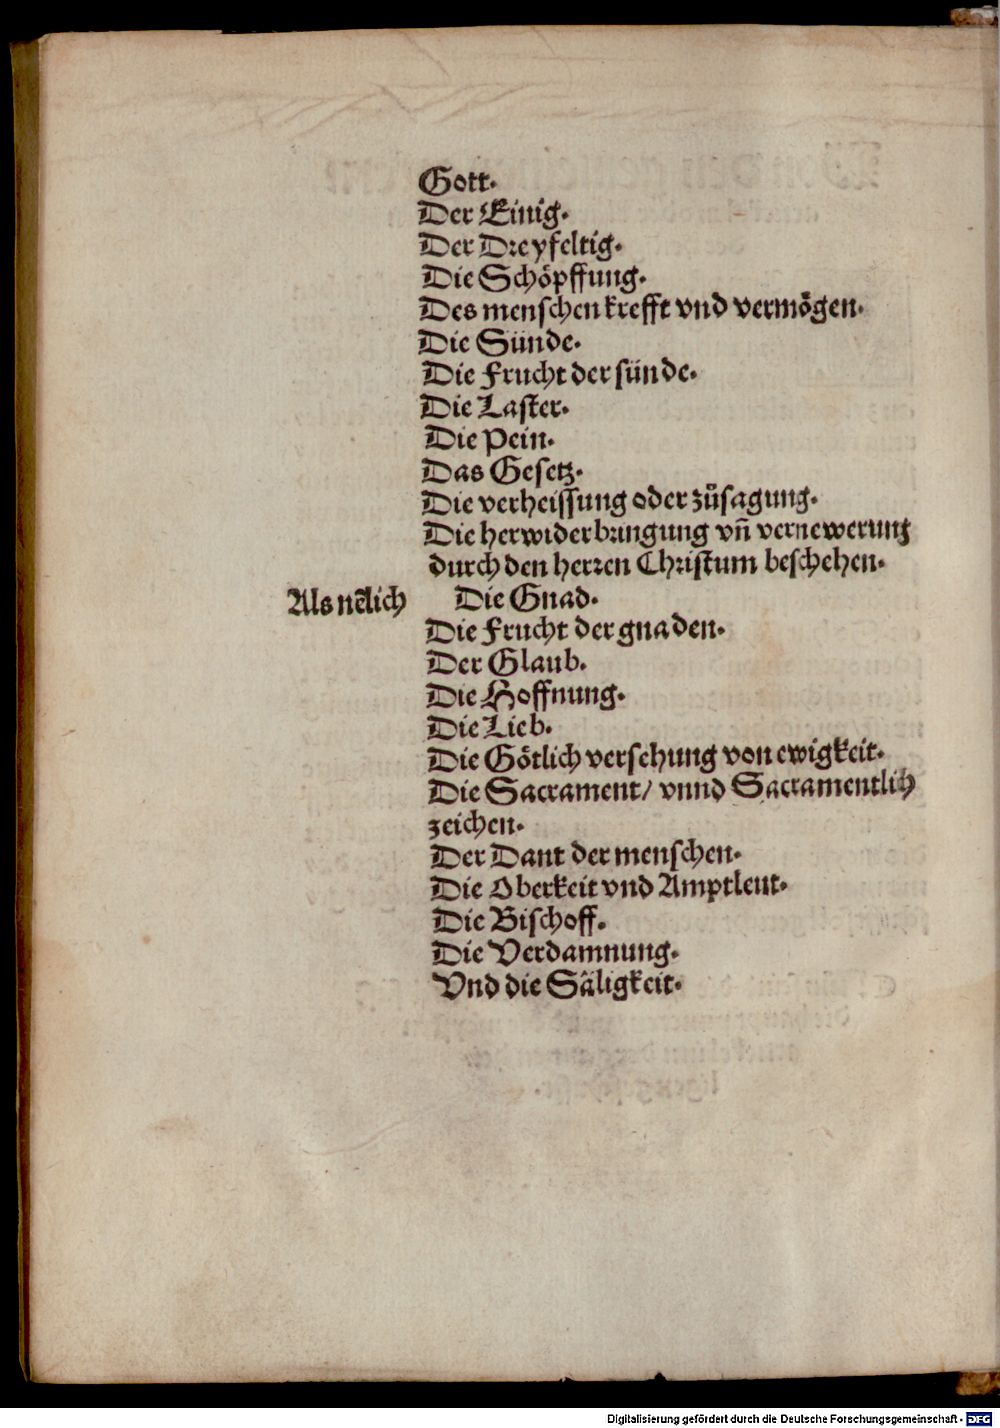 Gott.
Der Einig.
Der Dreyfeltig.
Die Schöpffung.
Des menschen krefft vnd vermögen.
Die Sünde.
Die Frucht der sünde.
Die Laster.
Die Pein.
Das Gesetz.
Die verheissung oder zůsagung.
Die herwiderbringung vñ vernewerung
durch den herren Christum beschehen.
Als nẽlich Die Gnad.
Die Frucht der gnaden.
Der Glaub.
Die Hoffnung.
Die Lieb.
Die Götlich versehung von ewigkeit.
Die Sacrament/ vnnd Sacramentlich
zeichen.
Der Dant der menschen.
Die Oberkeit vnd Amptleut.
Die Bischoff.
Die Verdamnung.
Vnd die Säligkeit.
Digitalisierung gefördert durch die Deutsche Forschungsgemeinschaft - DFG